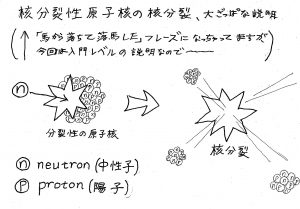 核分裂性原子核の核分裂、大ざっぱな説明
(↑「馬から落ちて落馬した」フレーズになっちゃってますが
今回は入門レベルの説明なので〜〜〜)
n
分裂性の原子核
核分裂
n neutron (中性子)
p proton (陽子)